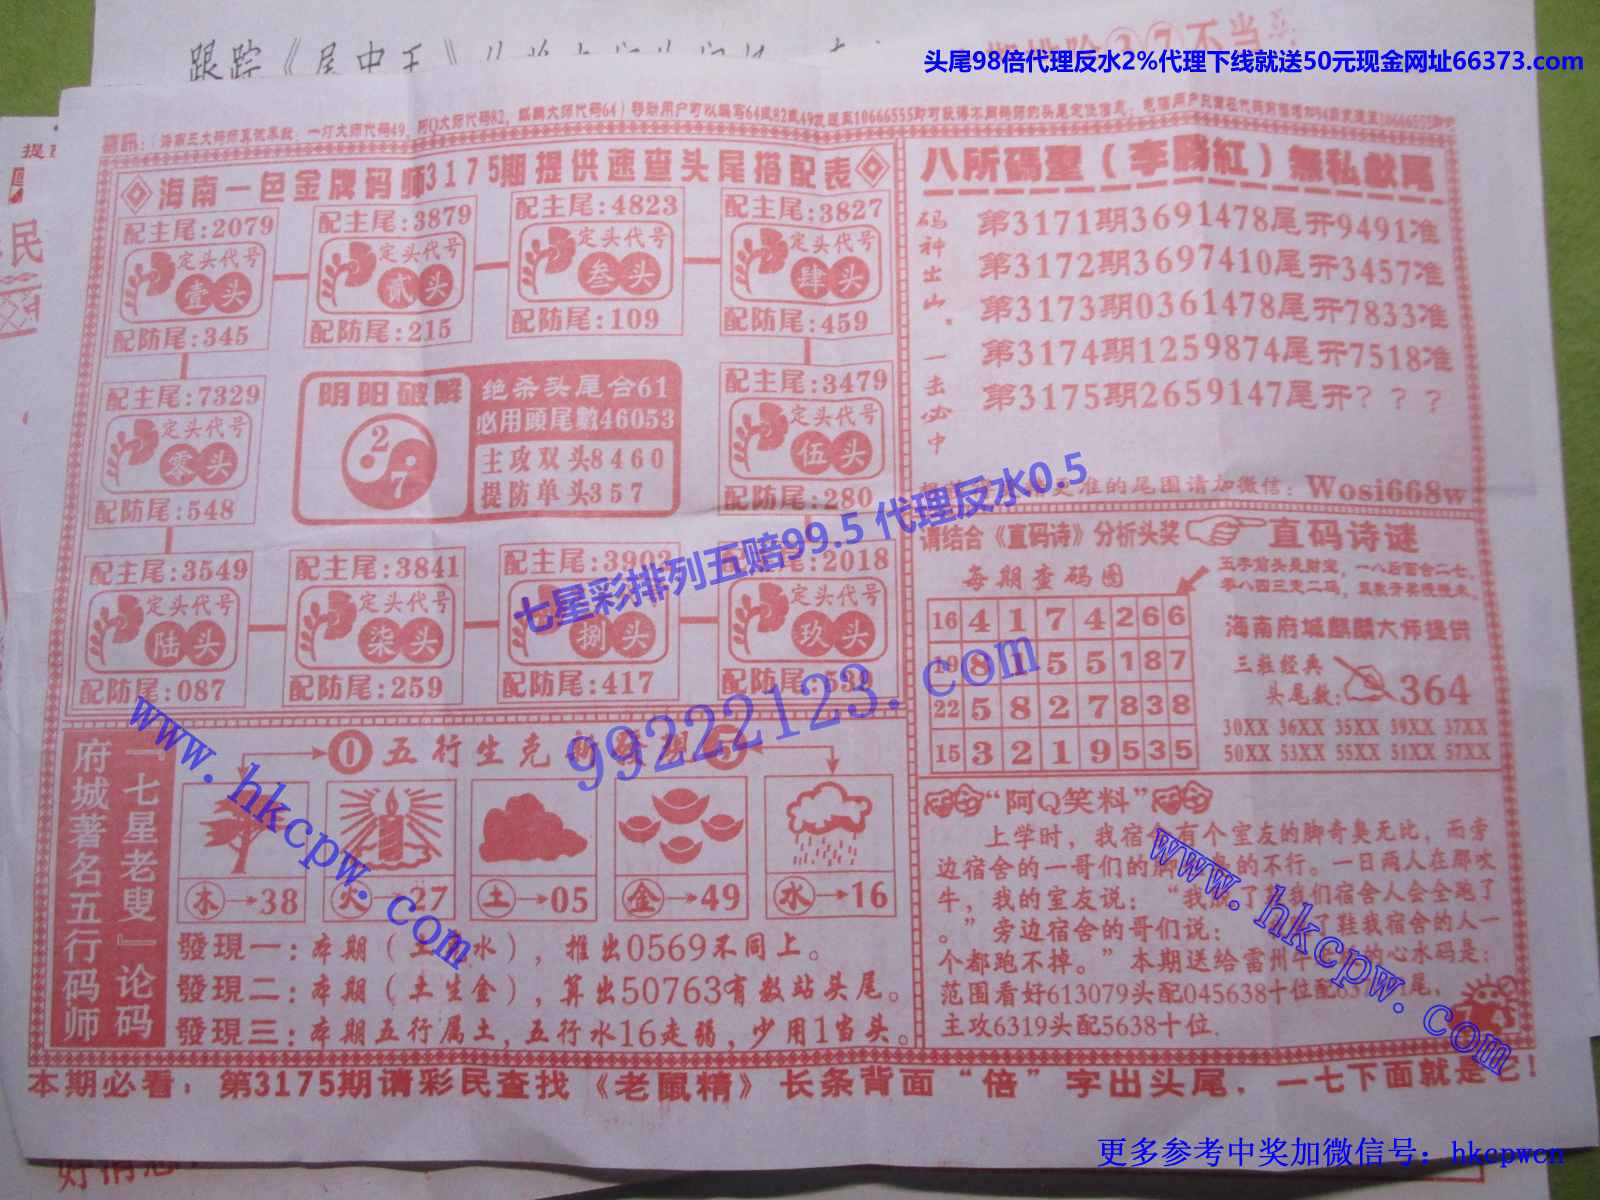 头尾98倍代理反水2%代理下线就送50元现金网址66373.com
跟踪《尾中王》
不当
海南一色金牌码师3175期提供速查头尾搭配表
配主尾:2079
定头代号
壹头
配防尾:345
配主尾:3879
定头代号
贰头
配防尾:215
配主尾:4823
定头代号
叁头
配防尾:109
配主尾:3827
定头代号
肆头
配防尾:459
配主尾:7329
定头代号
零头
配防尾:548
阴阳破解
2
7
绝杀头尾合61
必用頭尾數46053
主攻双头8460
提防单头357
配主尾:3479
定头代号
伍头
配防尾:280
配主尾:3549
定头代号
陆头
配防尾:087
配主尾:3841
定头代号
柒头
配防尾:259
配主尾:3903
定头代号
捌头
配防尾:417
配主尾:2018
定头代号
玖头
配防尾:539
八所碼聖(李勝紅)無私献尾
码神出山。一击必中
第3171期3691478尾开9491准
第3172期3697410尾开3457准
第3173期0361478尾开7833准
第3174期1259874尾开7518准
第3175期2659147尾开???
更准的尾图请加微信:Wosi668w
七星彩排列五赔99.5 代理反水0.5
99222123.com
请结合《直码诗》分析头奖
直码诗谜
每期查码图
16 4 1 7 4 2 6 6
19 8 1 5 5 1 8 7
22 5 8 2 7 8 3 8
15 3 2 1 9 5 3 5
海南府城麒麟大师提供
三狂经典
头尾数:364
30XX 36XX 35XX 39XX 37XX
50XX 53XX 55XX 51XX 57XX
『七星老叟』论码
府城著名五行码师
五行生克
木→38
火→27
土→05
金→49
水→16
發現一:本期(土 水),推出0569不同上。
發現二:本期(土生金),算出50763有数站头尾。
發現三:本期五行属土,五行水16走弱,少用1当头。
“阿Q笑料”
上学时,我宿舍有个室友的脚奇臭无比,而旁
边宿舍的一哥们的脚 的不行。一日两人在那吹
牛,我的室友说:“我脱了鞋我们宿舍人会全跑了
。”旁边宿舍的哥们说: 了鞋我宿舍的人一
个都跑不掉。”本期送给雷州 的心水码是:
范围看好613079头配045638十位配 尾,
主攻6319头配5638十位.
www.hkcpw.com
www.hkcpw.com
本期必看:第3175期请彩民查找《老鼠精》长条背面“倍”字出头尾.一七下面就是它!
更多参考中奖加微信号:hkcpwcn